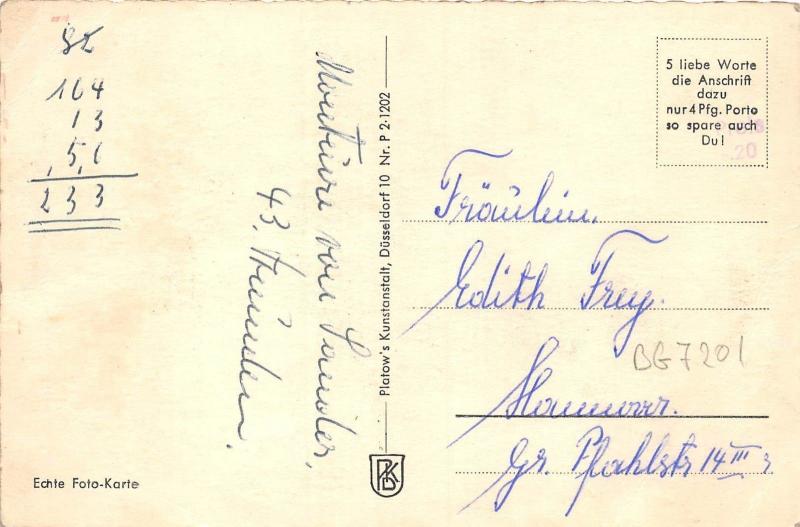 82
164
13
5,0
233
von Sander,
43.
Platow's Kunstanstalt, Düsseldorf 10 Nr. P 2-1202
5 liebe Worte
die Anschrift
dazu
nur 4 Pfg. Porto
so spare auch
Du!
20
Fräulein.
Edith Frey.
BG7201
Hannover.
Gr. Pfahlstr 14 III r
PKD
Echte Foto-Karte